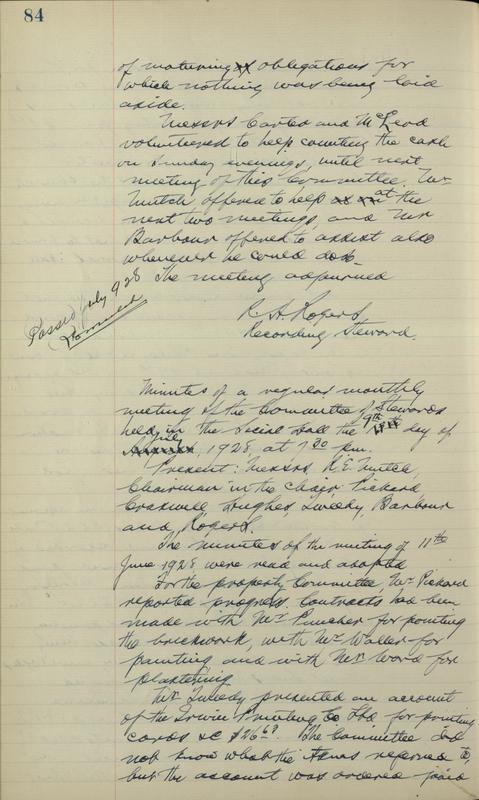 84
of maturing obligations for
which nothing was being laid
aside.
Messrs Carter and McLeod
volunteered to help counting the cash
on Sunday evenings, until next
meeting of this Committee. Mr
Mutch offered to help at the
next two meetings, and Mr
Barbour offered to assist also
whenever he could do so.
The meeting adjourned
Passed July 9 28
R. H. Rogers
Recording Steward.
Minutes of a regular monthly
meeting of the Committee of Stewards
held in the Social Hall the 9th day of
July, 1928, at 7 30 pm.
Present: Messrs R.E. Mutch,
Chairman in the chair, Pickard
Craswell, Hughes, Tweedy, Barbour
and Rogers.
The minutes of the meeting of 11th
June 1928 were read and adopted
For the property Committee, Mr Pickard
reported progress. Contracts had been
made with Mr Pincher for pointing
the brickwork, with Mr Waller for
painting and with Mr Word for
plastering.
Mr Tweedy presented an account
of the Irwin Printing Co Ltd for printing
cards &c $26.69. The Committee did
not know what the items referred to,
but the account was ordered paid